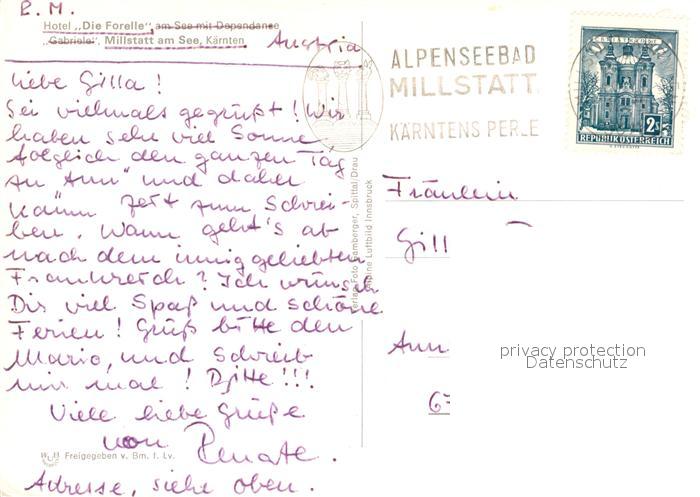 B. M.
Hotel „Die Forelle" am See mit Dependance
„Gabriele", Millstatt am See, Kärnten
Austria
Liebe Gilla!
Sei vielmals gegrüßt! Wir
haben sehr viel Sonne,
folglich den ganzen Tag
zu tun" und daher
kaum Zeit zum Schrei-
ben. Wann geht's ab
nach dem innig geliebten
Frankreich? Ich wünsch
Dir viel Spaß und schöne
Ferien! Grüß bitte den
Mario, und schreib
mir mal! Bitte!!!
Viele liebe Grüße
von Renate.
W. H Freigegeben v. Bm. f. Lv.
Adresse, siehe oben.
Verlag Foto Bamberger, Spittal/Drau
Alpine Luftbild Innsbruck
ALPENSEEBAD
MILLSTATT
KÄRNTENS PERLE
2 S
REPUBLIK ÖSTERREICH
Fräulein
Gill
Ann
67
privacy protection
Datenschutz